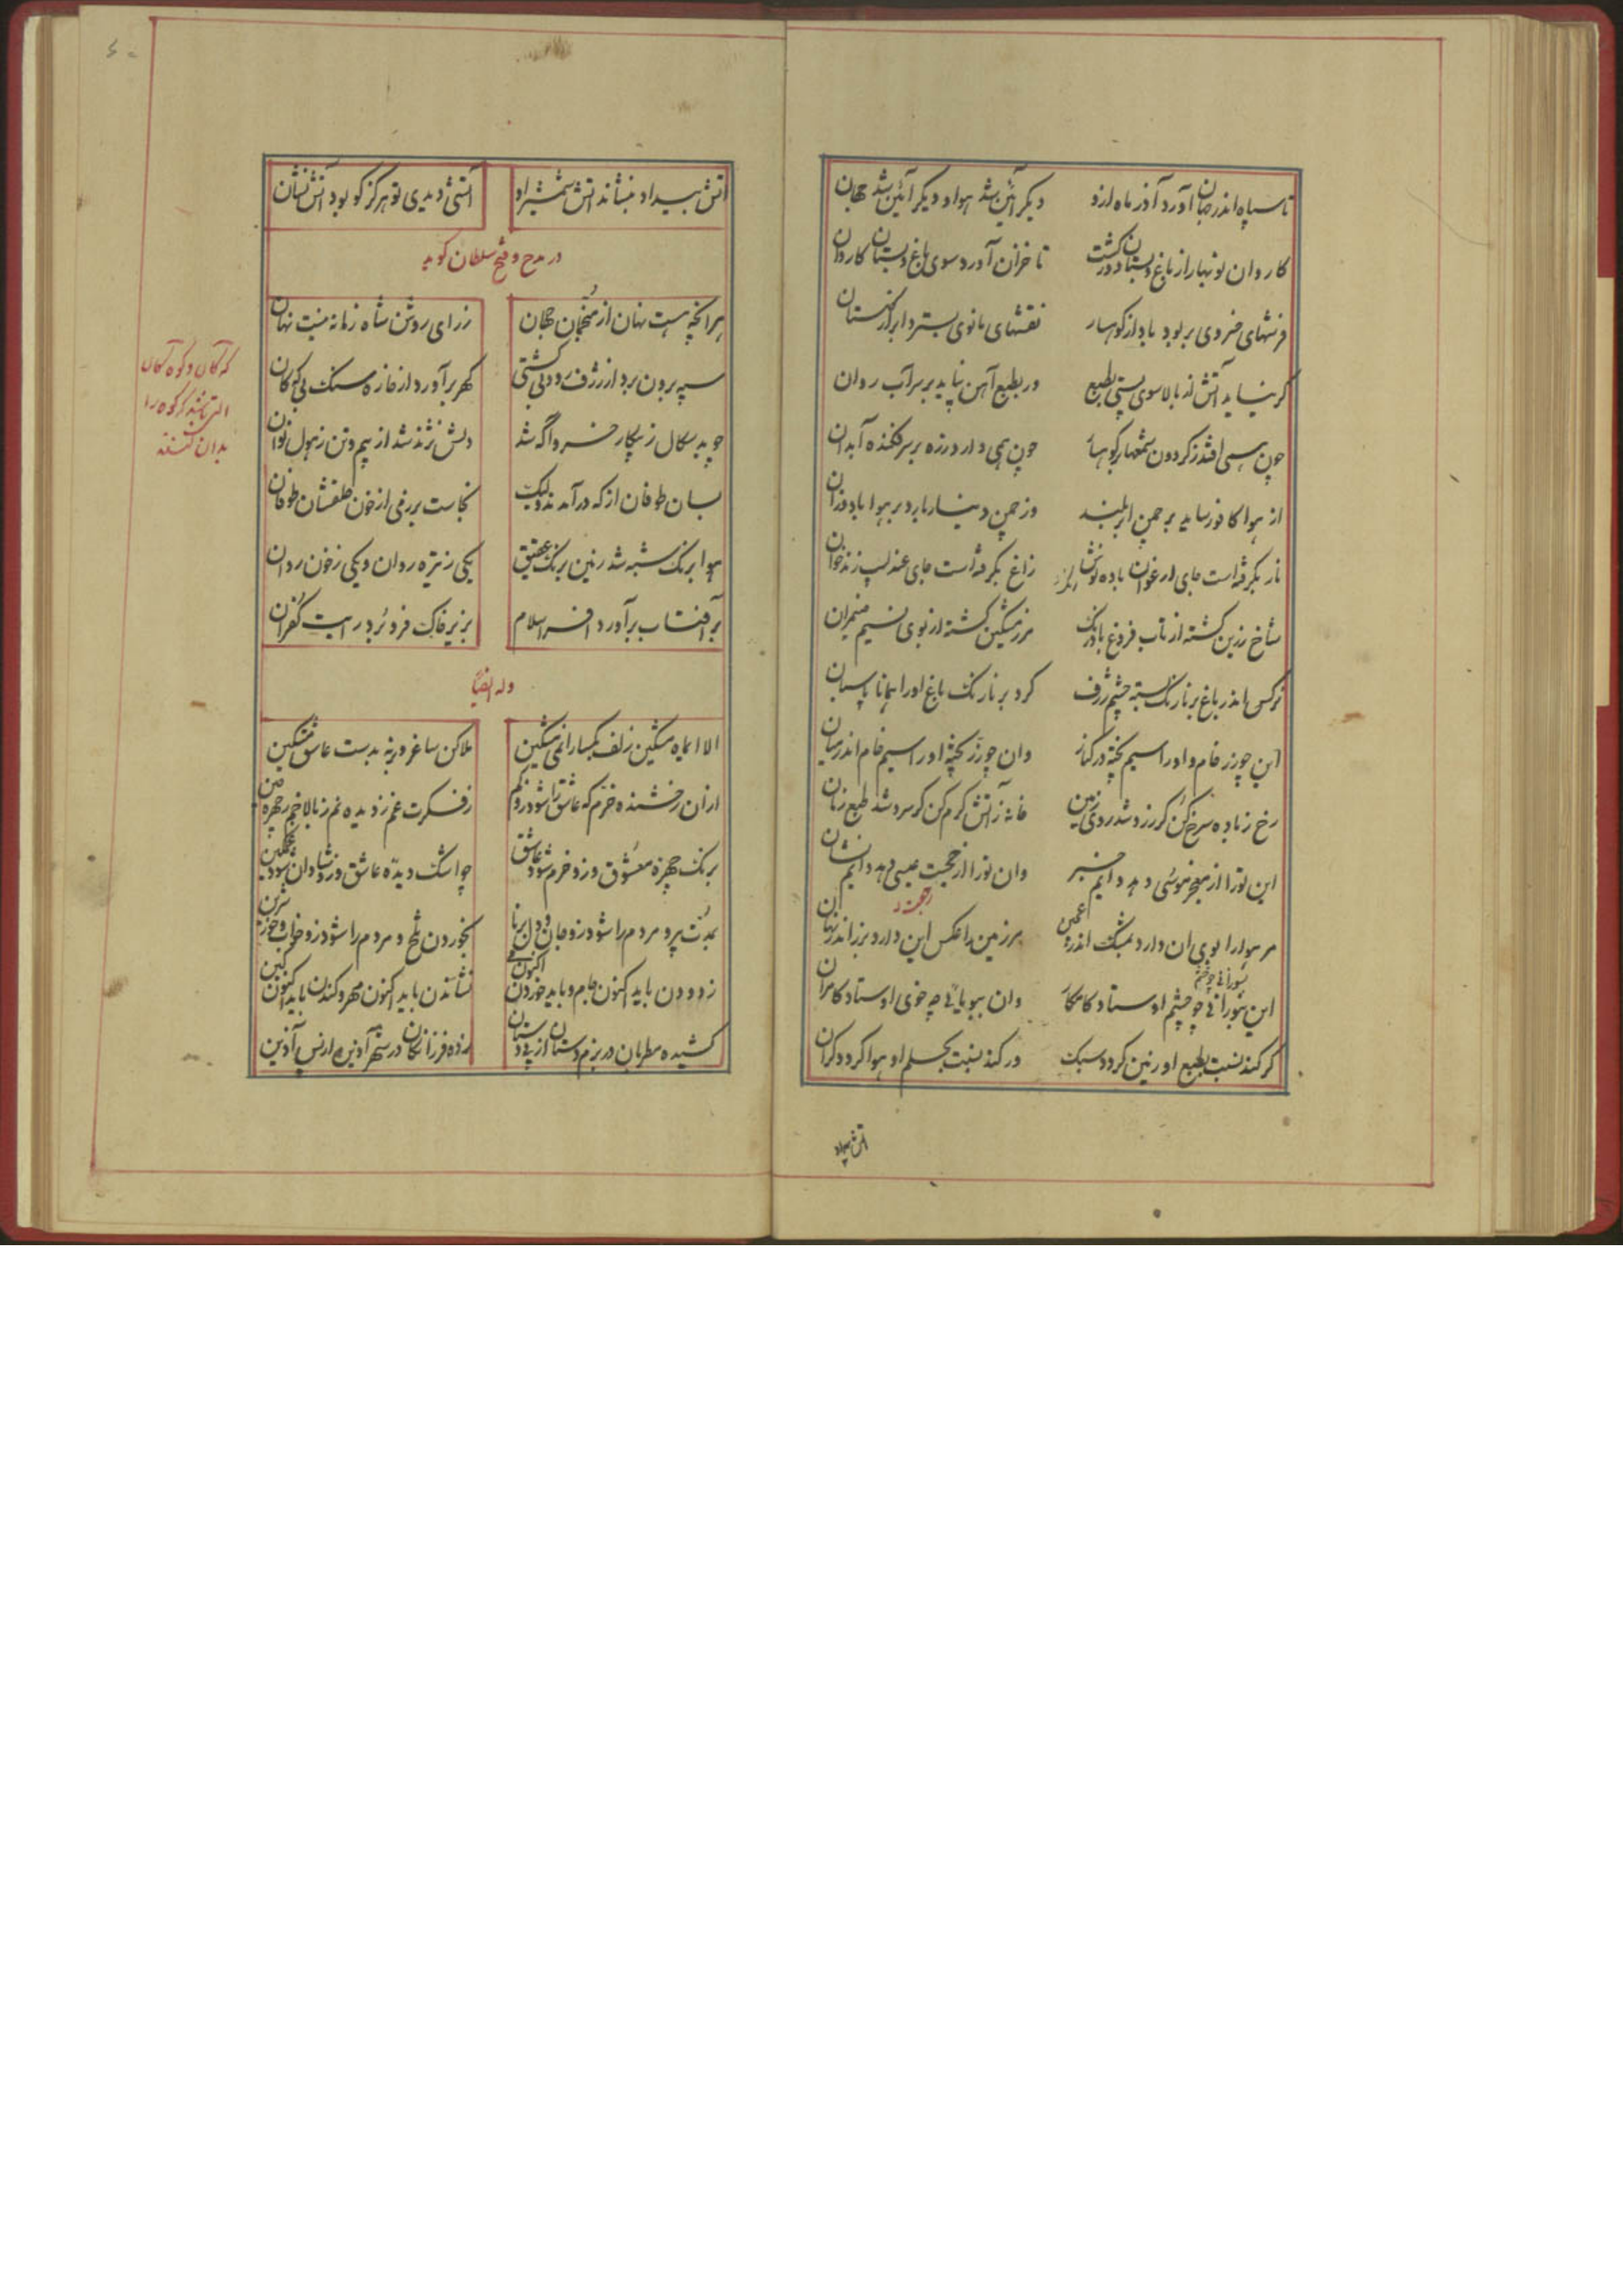 تا سپاه اندر جهان آورد آذر ماه ازو
دیگر آئین شد هوا و دیگر آئین شد جهان
کاروان نوبهار از باغ و بستان درگشت
تا خزان آورد سوی باغ و بستان کاروان
فرشهای خسروی بربود باد از کوهسار
نقشهای مانوی بسترد ابر از گلستان
گر نیاید آتش از بالا سوی پستی بطبع
ور بطبع آهن نیاید بر سر آب روان
چون همی افتد ز گردون شمعها بر کوهسار
چون همی دارد زره بر سر فکنده آبدان
از هوا کافور ساید بر چمن ابر بلند
وز چمن دینار بارد بر هوا باد وزان
نار بگرفته است جای ارغوان باده نوش
زاغ بگرفته است جای عندلیب زندخوان
شاخ زرین گشته از تاب فروغ بادرنگ
مرز مشکین گشته از بوی نسیم ضیمران
نرگس اندر باغ بر نارنگ بسته چشم ژرف
کرد بر نارنگ باغ او را همانا پاسبان
این چو زر خام و او را سیم پخته در کنار
وان چو زر پخته او را سیم خام اندر میان
رخ ز باده سرخ کن گر زرد شد روی زمین
خانه ز آتش گرم کن گر سرد شد طبع زمان
این ترا از معجز موسی دهد دایم خبر
وان ترا از حجت عیسی دهد دایم نشان
مر هوا را بوی آن دارد بمشک اندر عجین
مر زمین را عکس این دارد بزر اندر نهان
این بنورانی چو چشم اوستاد کامکار
وان ببویائی چو خوی اوستاد کامران
گر کند نسبت بطبع او زمین گردد سبک
ور کند نسبت بحلم او هوا گردد گران
آتش بیداد
آتش بیداد بنشاند آتش شمشیر او
آتشی دیدی تو هرگز کو بود آتش نشان
در مدح و فتح سلطان گوید
هر آنچه هست نهان از منجمان جهان
ز رای روشن شاه زمانه نیست نهان
سپه برون برد از ژرف رود بی کشتی
گهر برآورد از خاره سنگ بی که کان
چو بدسگال ز پیکار خسرو آگه شد
دلش نژند شد از بیم و تن ز هول نوان
بسان طوفان از که درآمدند ولیک
نجاست برزمی از خون خلقشان طوفان
هوا برنگ شبه شد زمین برنگ عقیق
یکی ز تیره روان و یکی ز خون روان
بر آفتاب برآورد افسر اسلام
بزیر خاک فرو برد رایت کفران
وله ایضا
الا ای ماه مشکین زلف یکبار انمی مشکین
ملا کن ساغر و برنه بدست عاشق مشکین
از ان رخشنده خرم که عاشق را شود زو کم
ز فکرت غم ز دیده نم ز بالا خم ز چهره چین
برنگ چهره معشوق وزو خرم شود عاشق
چو اشک دیده عاشق وزو شادان شود غمگین
بمدت پیر و مردم را شود زو جان و دل برنا
بخوردن تلخ و مردم را شود زو خواب و خور شیرین
زدودن باید اکنون جام و باید خوردن اکنون می
نشاندن باید اکنون مهر و کندن باید اکنون کین
کشیده مطربان در بزم دستان از پی دستان
زده فرزانگان در شهر آذین از پس آذین